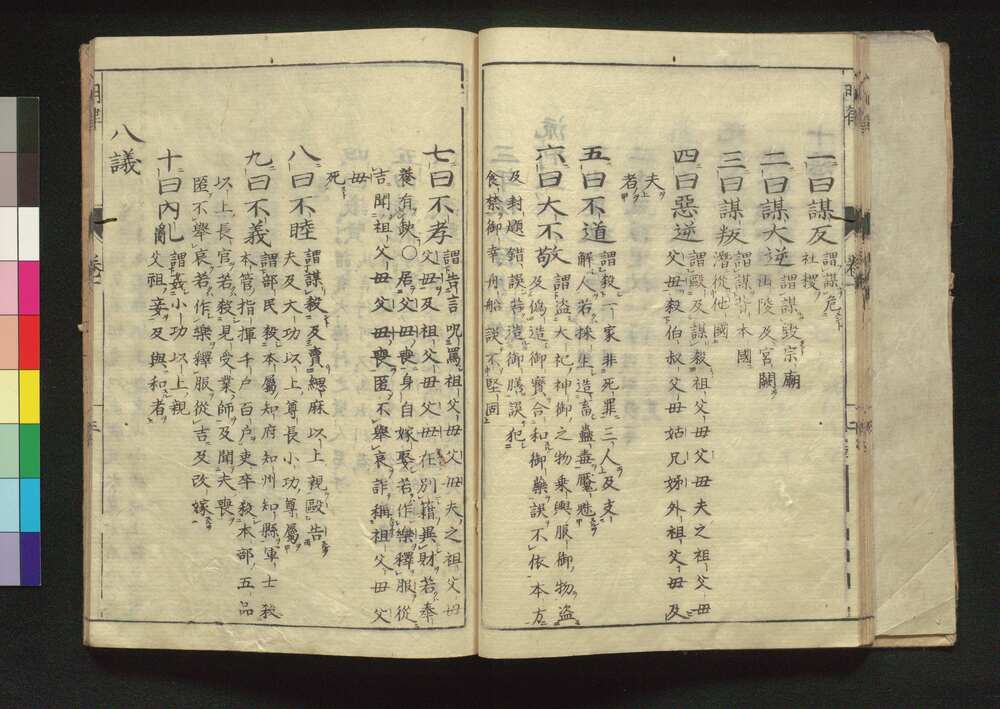 明律 卷一
一曰謀反
謂謀危
社稷
二曰謀大逆
謂謀毀宗廟
山陵及宮闕
三曰謀叛
謂謀背本國
潛從他國
四曰惡逆
謂毆及謀殺祖父母父母夫之祖父母
父母殺伯叔父母姑兄姊外祖父母及
夫
者
五曰不道
謂殺一家非死罪三人及支
解人若採生造畜蠱毒魘魅
六曰大不敬
謂盜大祀神御之物乘輿服御物盜
及偽造御寶合和御藥誤不依本方
及封題錯誤若造御膳誤犯
食禁御幸舟船誤不堅固
七曰不孝
謂告言呪罵祖父母父母夫之祖父母
父母及祖父母父母在別籍異財若奉
養有缺○居父母喪身自嫁娶若作樂釋服從
吉聞祖父母父母喪匿不舉哀詐稱祖父母父
母
死
八曰不睦
謂謀殺及賣緦麻以上親毆告
夫及大功以上尊長小功尊屬
九曰不義
謂部民殺本屬知府知州知縣軍士殺
本管指揮千户百户吏卒殺本部五品
以上長官若殺見受業師及聞夫喪
匿不舉哀若作樂釋服從吉及改嫁
十曰內亂
謂姦小功以上親
父祖妾及與和者
八議
明律 卷一